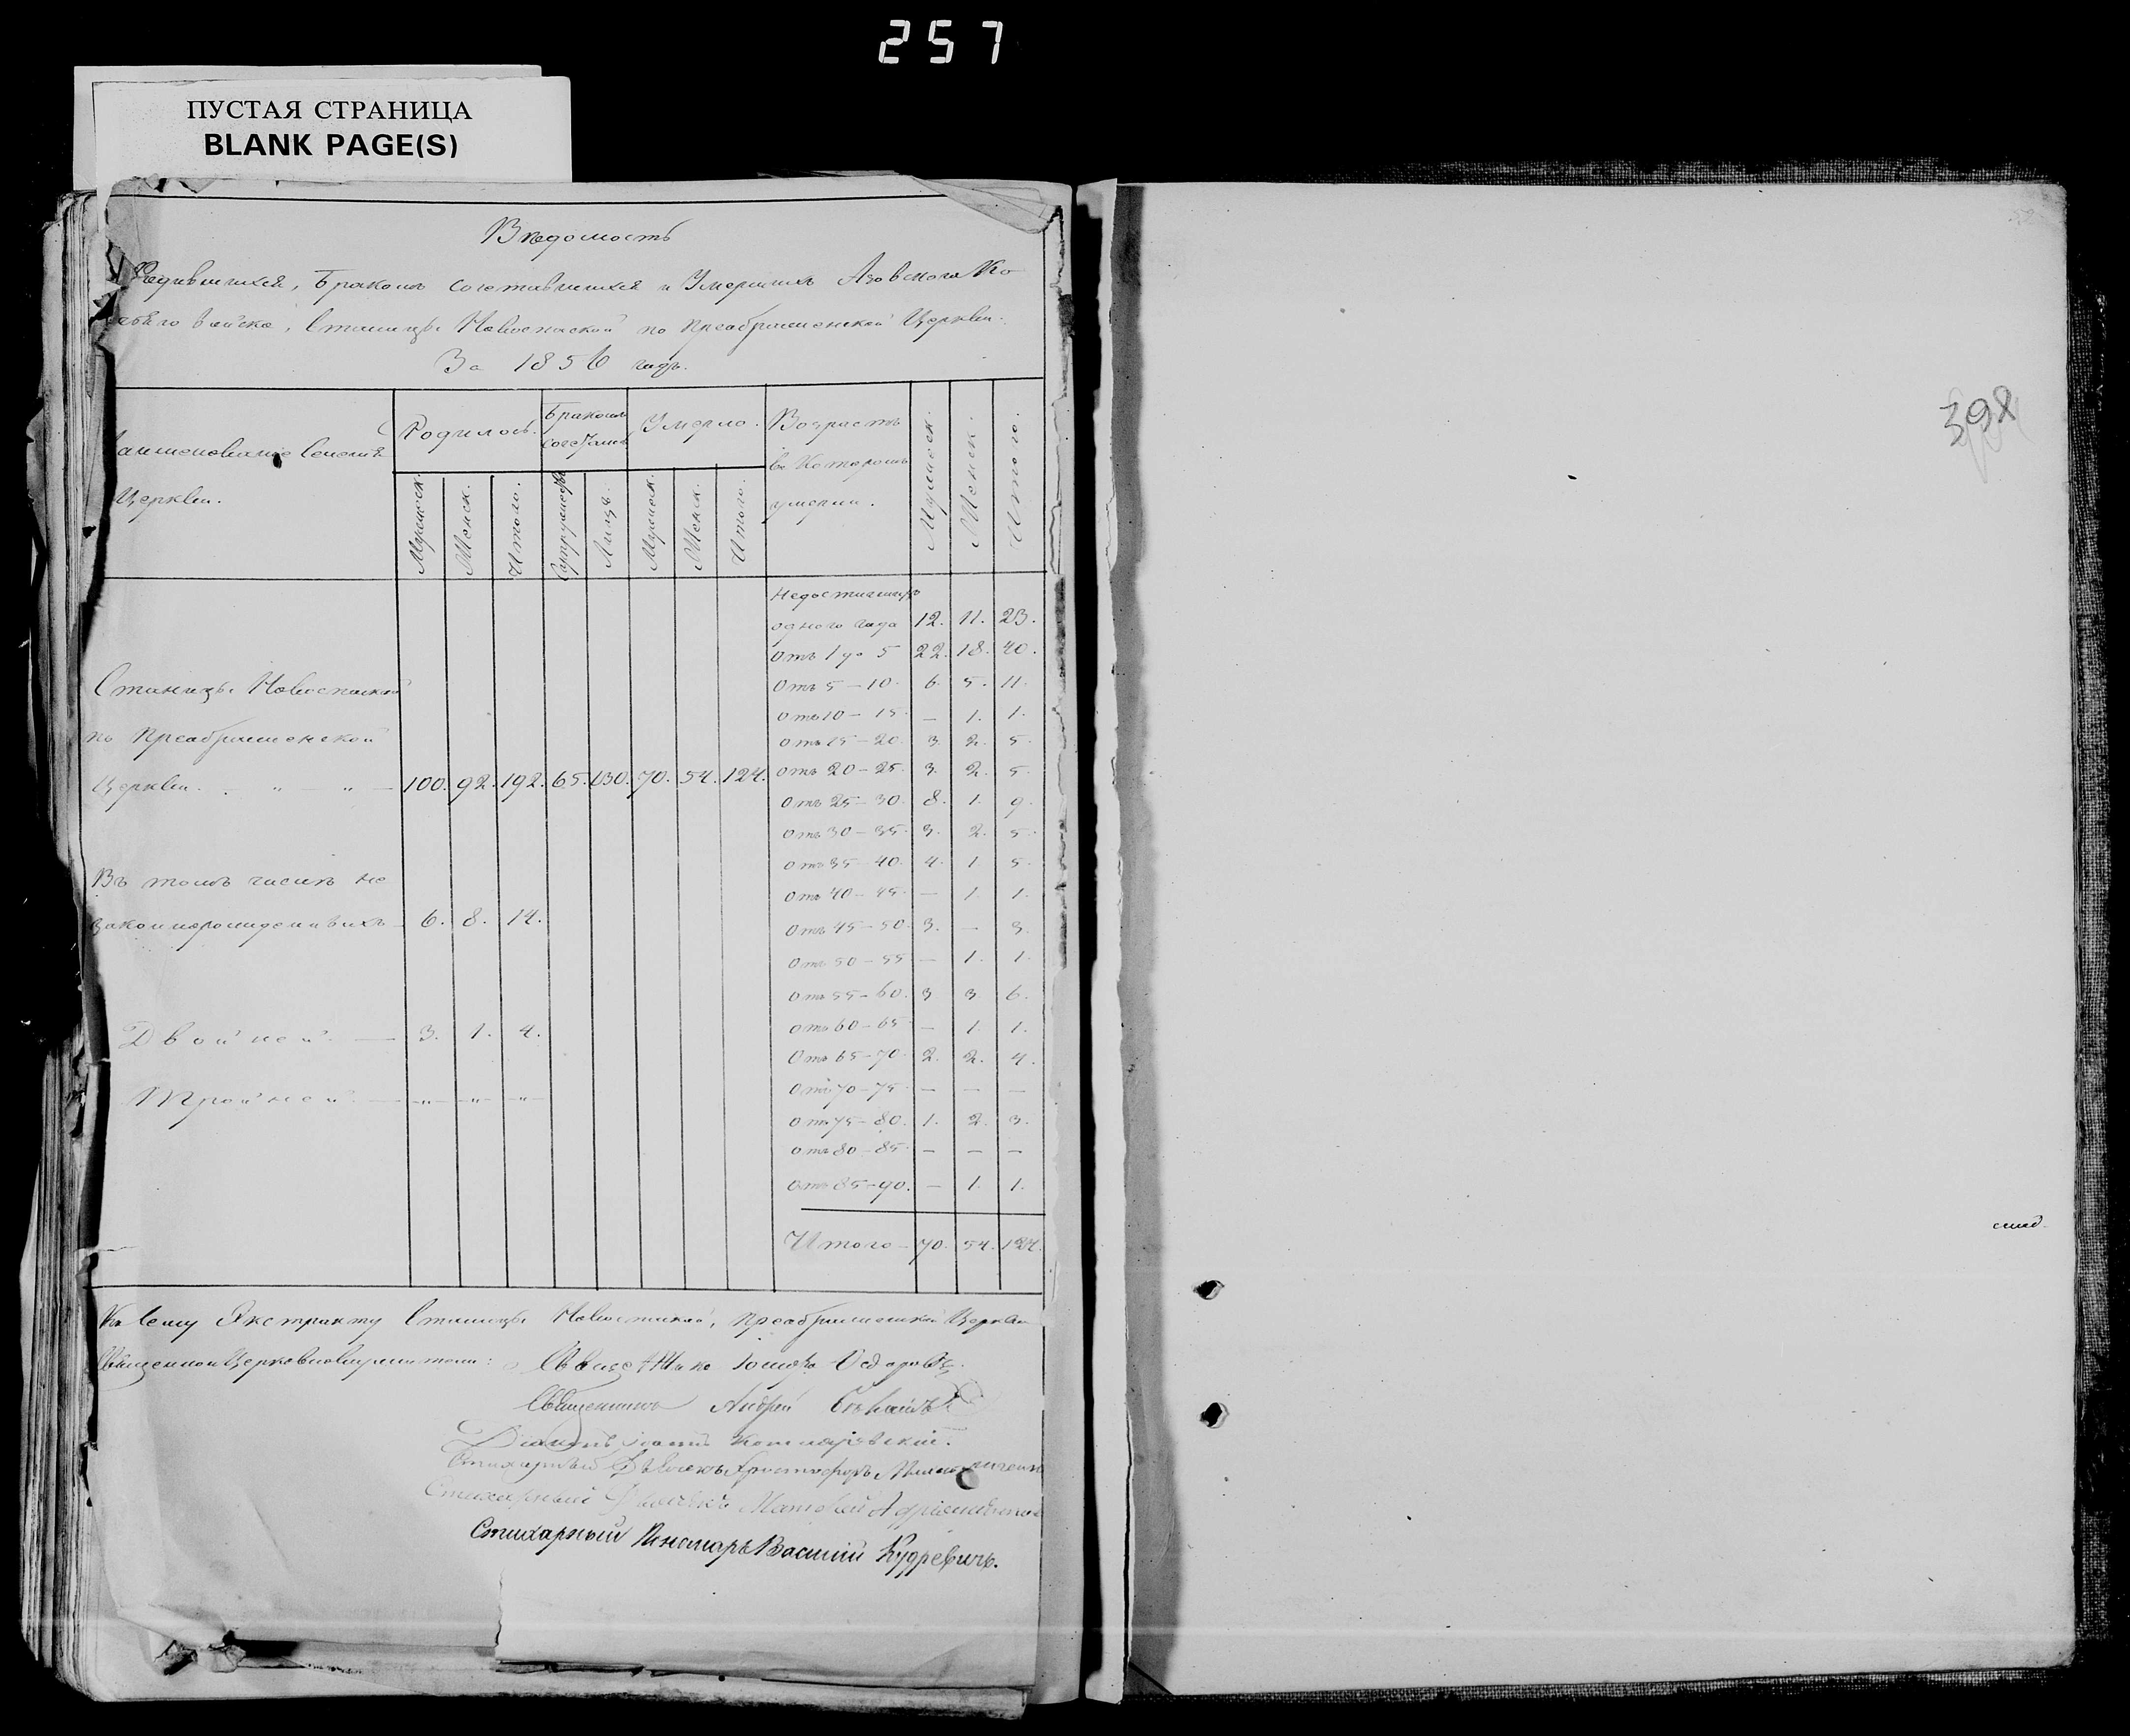 257
ПУСТАЯ СТРАНИЦА
BLANK PAGE(S)
Вѣдомость
Родившихся, Бракомъ сочетавшихся и Умершихъ Азовскаго Ка
зачьяго войска, Станицы Новоспаской по Преображенской Церкви.
За 1856 годъ.
Наименованіе Селенія Церкви.
Родилось.
Бракомъ сочетались
Умерло.
Возрастъ въ которомъ умерли.
Мужеск. Женск. Итого. Супружествъ Лицъ. Мужеск. Женск. Итого. Мужеск. Женск. Итого.
недостигшихъ
одного года 12. 11. 23.
отъ 1 до 5 22. 18. 40.
отъ 5 – 10. 6. 5. 11.
отъ 10 – 15. – 1. 1.
отъ 15 – 20. 3. 2. 5.
отъ 20 – 25. 3. 2. 5.
отъ 25 – 30. 8. 1. 9.
отъ 30 – 35. 3. 2. 5.
отъ 35 – 40. 4. 1. 5.
отъ 40 – 45. – 1. 1.
отъ 45 – 50. 3. – 3.
отъ 50 – 55 – 1. 1.
отъ 55 – 60. 3. 3. 6.
отъ 60 – 65 – 1. 1.
отъ 65 – 70. 2. 2. 4.
отъ 70 – 75. – – –
отъ 75 – 80. 1. 2. 3.
отъ 80 – 85. – – –
отъ 85 – 90. – 1. 1.
Итого – 70. 54. 124.
Станицы Новоспаской
по Преображенской
Церкви. . „ – „ – 100. 92. 192. 65. 130. 70. 54. 124.
Въ томъ числѣ не
законнорожденныхъ – 6. 8. 14.
Двойней. — 3. 1. 4.
Тройней. — „ – „ – „ –
Къ сему Экстракту Станицы Новоспаской, Преображенской Церкви
Священноцерковнослужители:
Священникъ Андрей
Діаконъ Іоаннъ
Стихарный Дьячекъ Христофоръ
Стихарный Матвей
Стихарный Пономарь Василій Кудревичь.
398